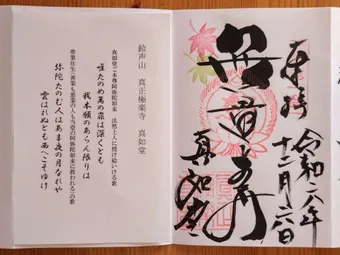 奉拝
令和六年
十二月六日
無量寿
真如堂
鈴声山 真正極楽寺 真如堂
真如堂ご本尊阿弥陀如来 法然上人に授け給いける歌
唯たのめ萬の罪は深くとも
我本願のあらん限りは
の人も当堂の阿弥陀如来に救われる
弥陀たのむ人はあま夜の月なれや
雲はれねども西へこそゆけ